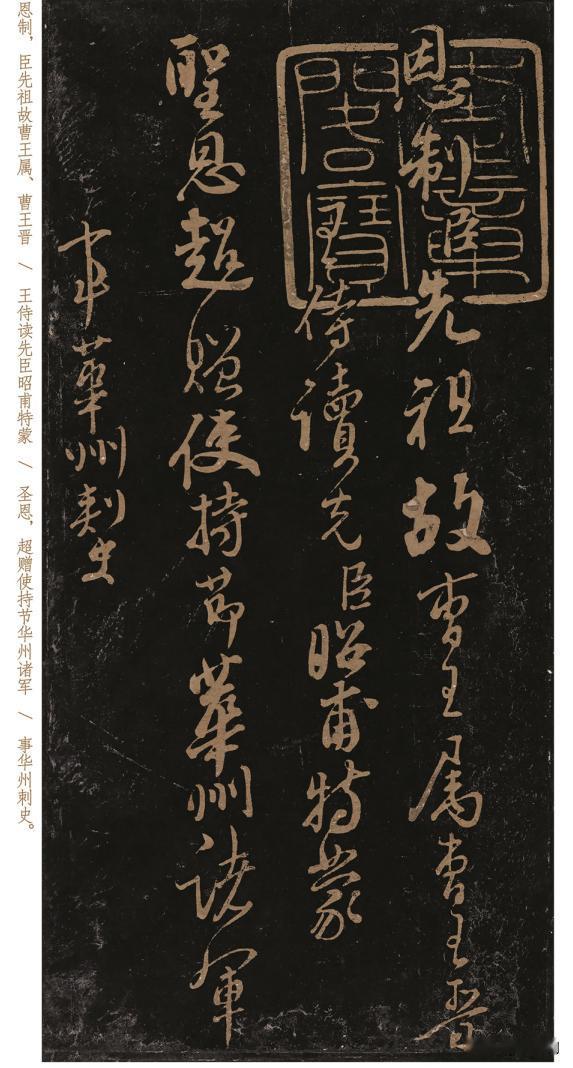 恩制臣先祖故曹王属曹王晋
王侍读先臣昭甫特蒙
聖恩超贈使持節華州諸軍
事華州刺史
恩制，臣先祖故曹王属、曹王晋 / 王侍读先臣昭甫特蒙 / 圣恩，超赠使持节华州诸军 / 事华州刺史。